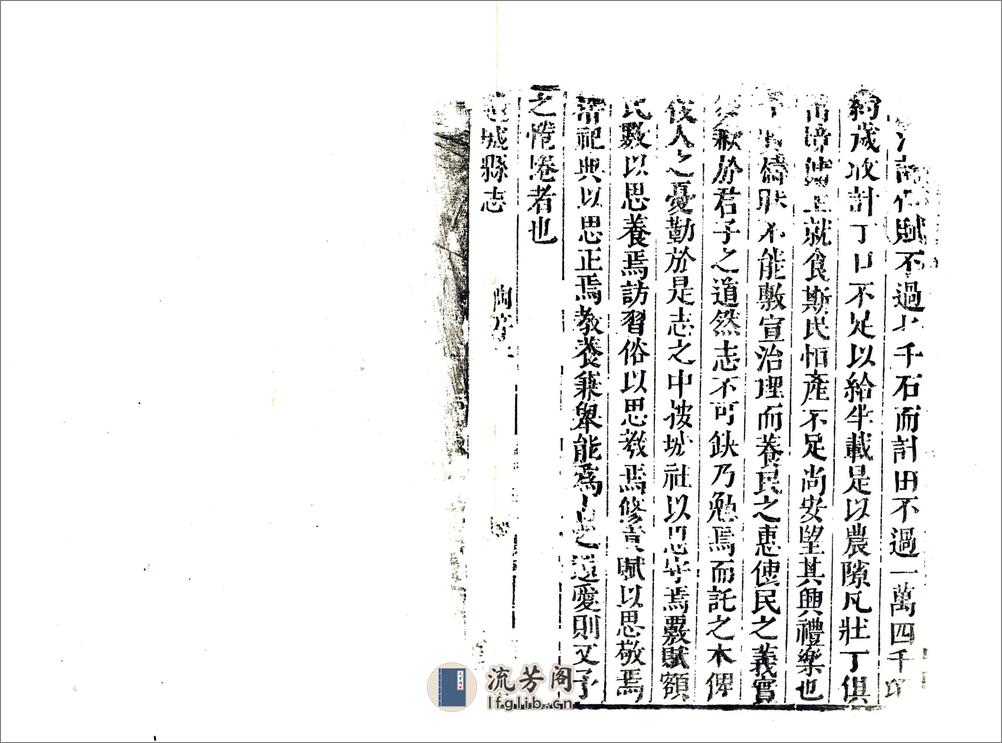 賦不過七千石而計田不過一萬四千
約歲收計丁口不足以給半載是以農隙凡壯丁俱
就食斯民恒產不足尚安望其興禮樂也
不能敷宣治理而養民之惠使民之義實
歉於君子之道然志不可缺乃勉焉而託之木俾
後人之憂勤於是志之中披城社以思守焉覈賦額
民數以思養焉訪習俗以思教焉修貢賦以思敬焉
祀典以思正焉教養兼舉能為之遺愛則又予
之惓惓者也
城縣志
流芳阁
lfglib.cn